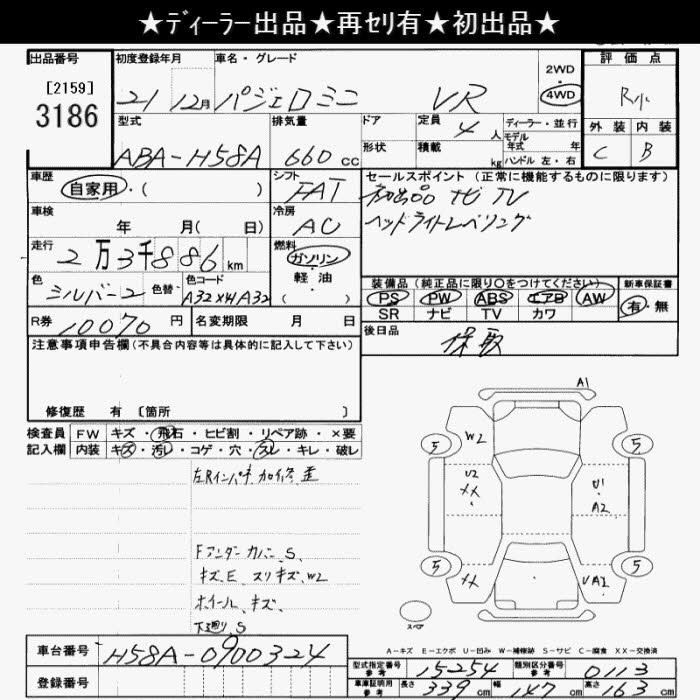 ★ﾃﾞｨｰﾗｰ出品★再ｾﾘ有★初出品★
出品番号 初度登録年月 車名・グレード 2WD 評価点
[2159] 21 12月 パジェロミニ VR 4WD R小
3186
型式 排気量 ドア 定員 4人 ディーラー・並行 外装 内装
モデル
年式 年
ABA-H58A 660cc 形状 積載 kg ハンドル 左・右 C B
車歴 シフト セールスポイント (正常に機能するものに限ります)
自家用・( ) FAT 初出品 ナビ TV
車検 冷房 ヘッドライトレベリング
年 月( 日) AC
走行 燃料
2万3千886km ガソリン
色 色替 色コード ・
軽・油 装備品 (純正品に限り○をつけてください) 新車保証書
シルバー2 A32×H A32 ( ) PS PW ABS エアB AW 有・無
SR ナビ TV カワ
R券 10070円 名変期限 月 日 後日品
保 取
注意事項申告欄(不具合内容等は具体的に記入して下さい)
修復歴 有 [箇所 ]
A1
検査員 FW キズ・飛石・ヒビ割・リペア跡・×要
記入欄 内装 キズ・汚レ・コゲ・穴・スレ・キレ・破レ
5 W2 5
左Rインパネ加修 歪
U2 U1
XX A2
FアンダーカバーS、
キズE スリキズ、W2
5 XX UA2 5
ホイールキズ、
下廻りS
スペア
A－キズ E－エクボ U－凹み W－補修跡 S－サビ C－腐食 XX－交換済
車台番号 H58A-0900324
型式指定番号 参考 15254 類別区分番号 参考 0113
登録番号
車庫証明用 参考 長さ 339cm 幅 147cm 高さ 163cm